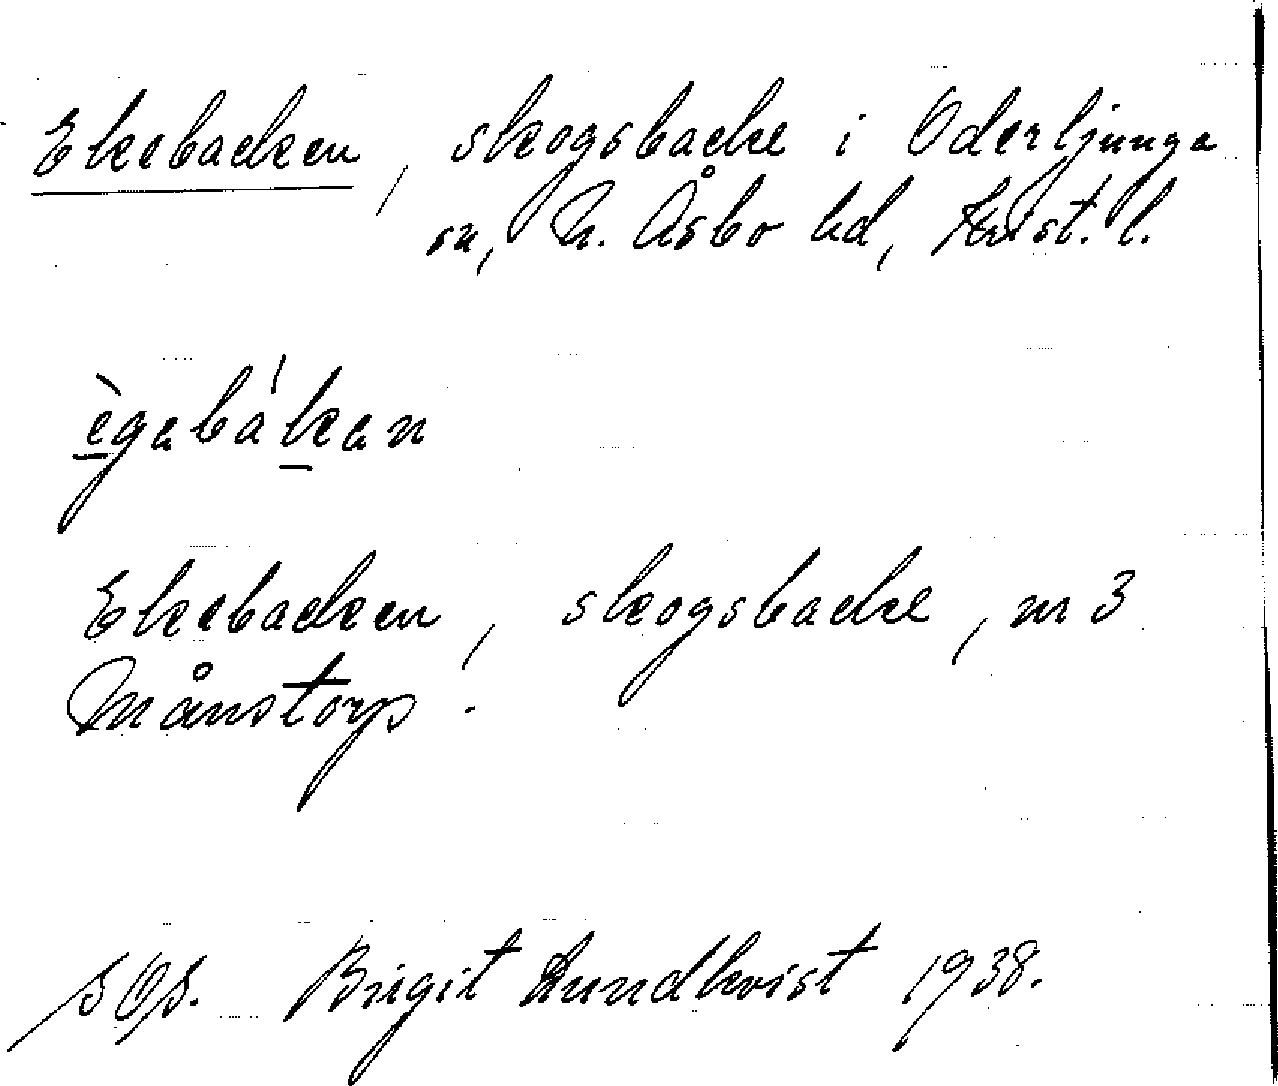 Ekebacken, skogsbacke i Oderljunga
sn, N. Åsbo hd, Krist. l.
ègabá'kan
Ekebacken, skogsbacke, nr 3
Månstorp.
SOS. Birgit Lundkvist 1938.